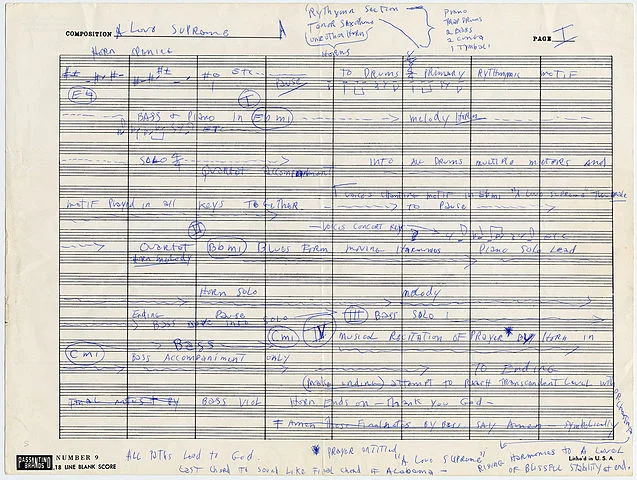 COMPOSITION A Love Supreme
Rythymn Section —
Tenor Saxophone
one other horn
Piano
Trap Drums
2 Bass
2 Conga
1 Timbali
PAGE I
Horns
Horn
etc
Pause
TO DRUMS PRIMARY RYTHMIC MOTIF
I
BASS + PIANO in Ebmi
melody Horn
ETC
SOLO
INTO ALL DRUMS MULTIPLE METERS AND
Quartet Accompaniment
voices chanting motif in Ebmi "A Love Supreme"
motif Played in all KEYS TOGETHER
TO PAUSE
II
VOICES CONCERT KEY
etc
Quartet Bbmi Blues Form moving Harmonies Piano Solo Lead
Horn melody
Horn Solo
melody
Ending Pause
BASS INTO SOLO
III Bass Solo
Cmi IV MUSICAL RECITATION OF PRAYER * BY HORN in
Cmi
Bass
BASS ACCOMPANIMENT ONLY
TO Ending
(make ending) attempt to REACH Transcendent Level with
ORCHESTRA
BY BASS VIOL
Horn Ends on — Thank you God —
Final notes by Bass Say Amen — Symbolically
RISING Harmonies to A Level
OF BLISSFUL Stability at end.
PASSANTINO
BRANDS
NUMBER 9
18 LINE BLANK SCORE
ALL Paths Lead to God.
* PRAYER ENTITLED "A Love Supreme"
Last Chord to Sound Like Final Chord of Alabama —
Litho'd in U.S.A.